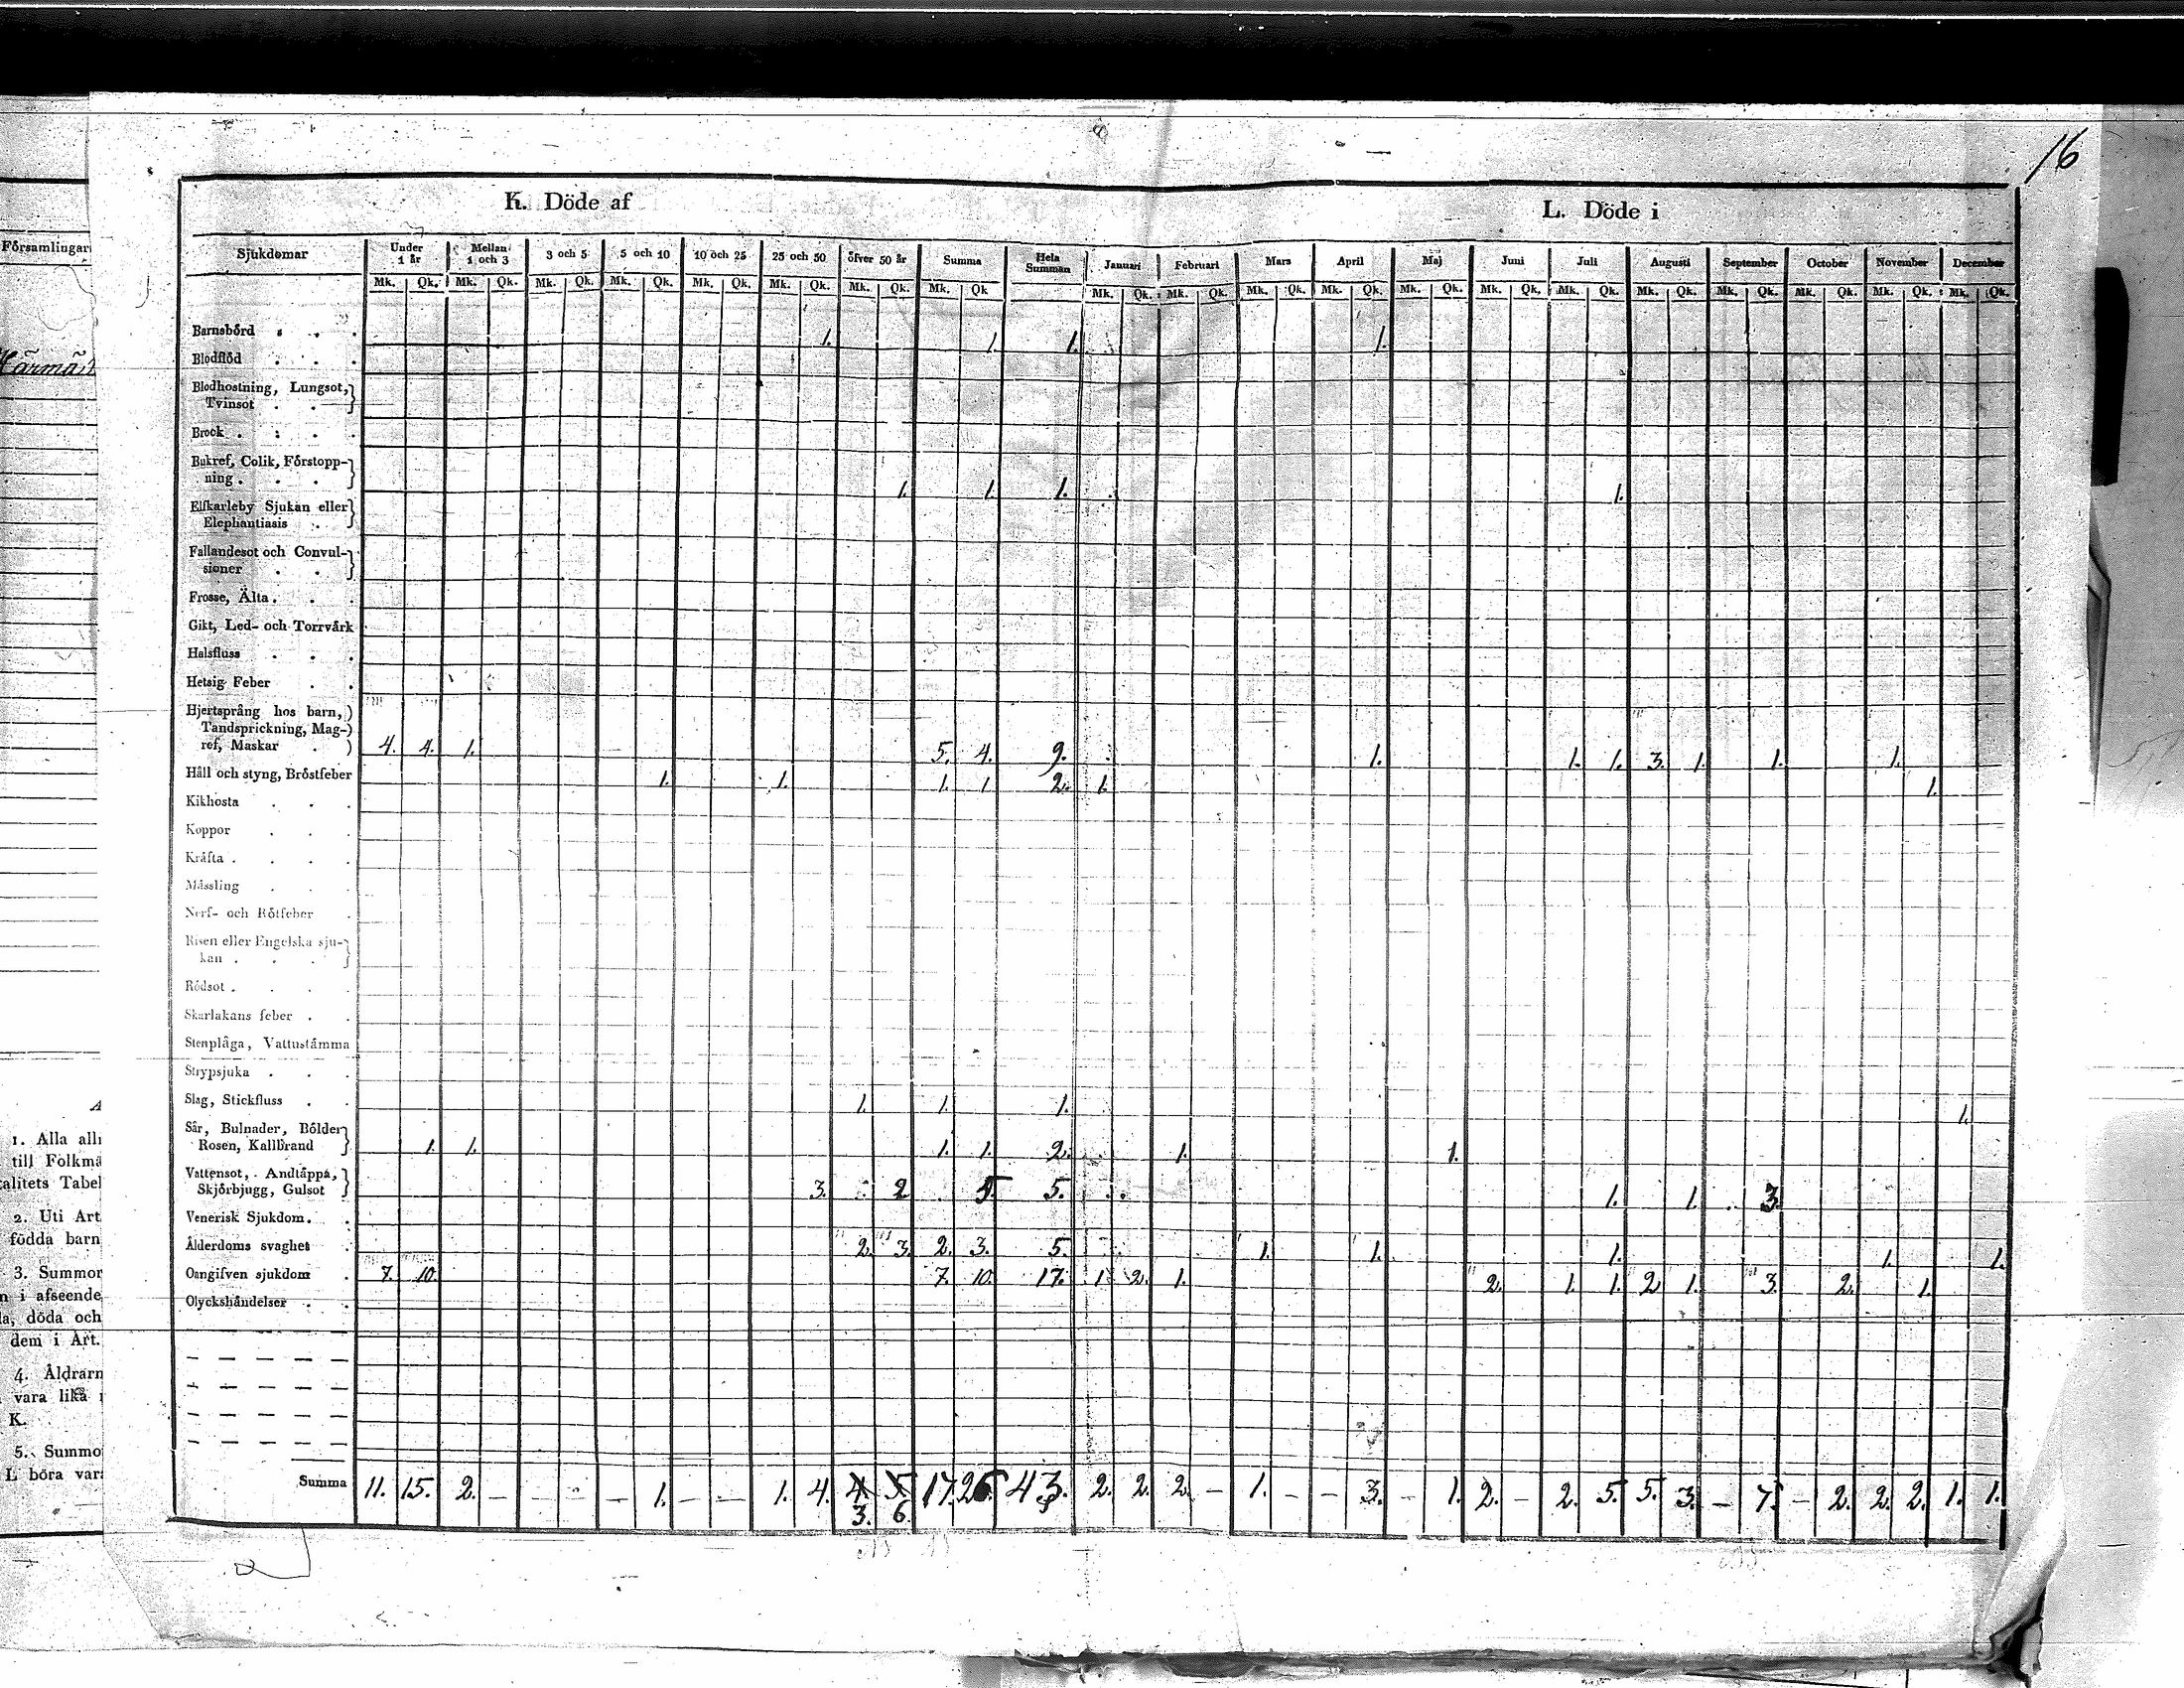 16
K. Döde af
L. Döde i
Församlingar
Sjukdomar
Under 1 år
Mellan 1 och 3
3 och 5
5 och 10
10 och 25
25 och 50
öfver 50 år
Summa
Hela Summan
Januari
Februari
Mars
April
Maj
Juni
Juli
Augusti
September
October
November
December
Mk. Qk. Mk. Qk. Mk. Qk. Mk. Qk. Mk. Qk. Mk. Qk. Mk. Qk. Mk. Qk Mk. Qk. Mk. Qk. Mk. Qk. Mk. Qk. Mk. Qk. Mk. Qk. Mk. Qk. Mk. Qk. Mk. Qk. Mk. Qk. Mk. Qk. Mk. Qk.
Barnsbörd . . . 1. 1. 1. 1.
Blodflöd . . .
Blodhostning, Lungsot,
Tvinsot . .
Brock . . . .
Bukref, Colik, Förstopp-
ning . . . 1. 1. 1. 1.
Elfkarleby Sjukan eller
Elephantiasis .
Fallandesot och Convul-
sioner . .
Frosse, Älta . . .
Gikt, Led- och Torrvärk
Halsfluss . . .
Hetsig Feber . .
Hjertsprång hos barn,
Tandsprickning, Mag-
ref, Maskar . 4. 4. 1. 5. 4. 9. 1. 1. 1. 3. 1. 1. 1.
Håll och styng, Bröstfeber 1. 1. 1. 1 2. 1. 1.
Kikhosta . . .
Koppor . . .
Kräfta . . . .
Mässling . . .
Nerf- och Rötfeber .
Risen eller Engelska sju-
kan . . .
Rödsot . . . .
Skarlakans feber . .
Stenplåga, Vattustämma
Strypsjuka . . .
Slag, Stickfluss . . 1. 1. 1. 1.
Sår, Bulnader, Bölder
Rosen, Kallbrand 1. 1. 1. 1. 2. 1. 1.
Vattensot, Andtäppa,
Skjörbjugg, Gulsot 3. 2 5. 5. 1. 1. 3.
Venerisk Sjukdom . .
Ålderdoms svaghet . 2. 3. 2. 3. 5. 1. 1. 1. 1. 1.
Oangifven sjukdom . 7. 10. 7. 10. 17. 1. 2. 1. 2. 1. 1. 2. 1. 3. 2. 1.
Olyckshändelser . .
Summa 11. 15. 2. – – – 1. – – 1. 4. 4. 5. 17. 26. 43. 2. 2. 2. – 1. – – 3. – 1. 2. – 2. 5. 5. 3. – 7. – 2. 2. 2. 1. 1.
3. 6.
1. Alla all
till Folkmä
talitets Tabel
2. Uti Art
födda barn
3. Summor
i afseende
döda och
dem i Art.
4. Åldrarn
vara lika
K.
5. Summo
L böra vara